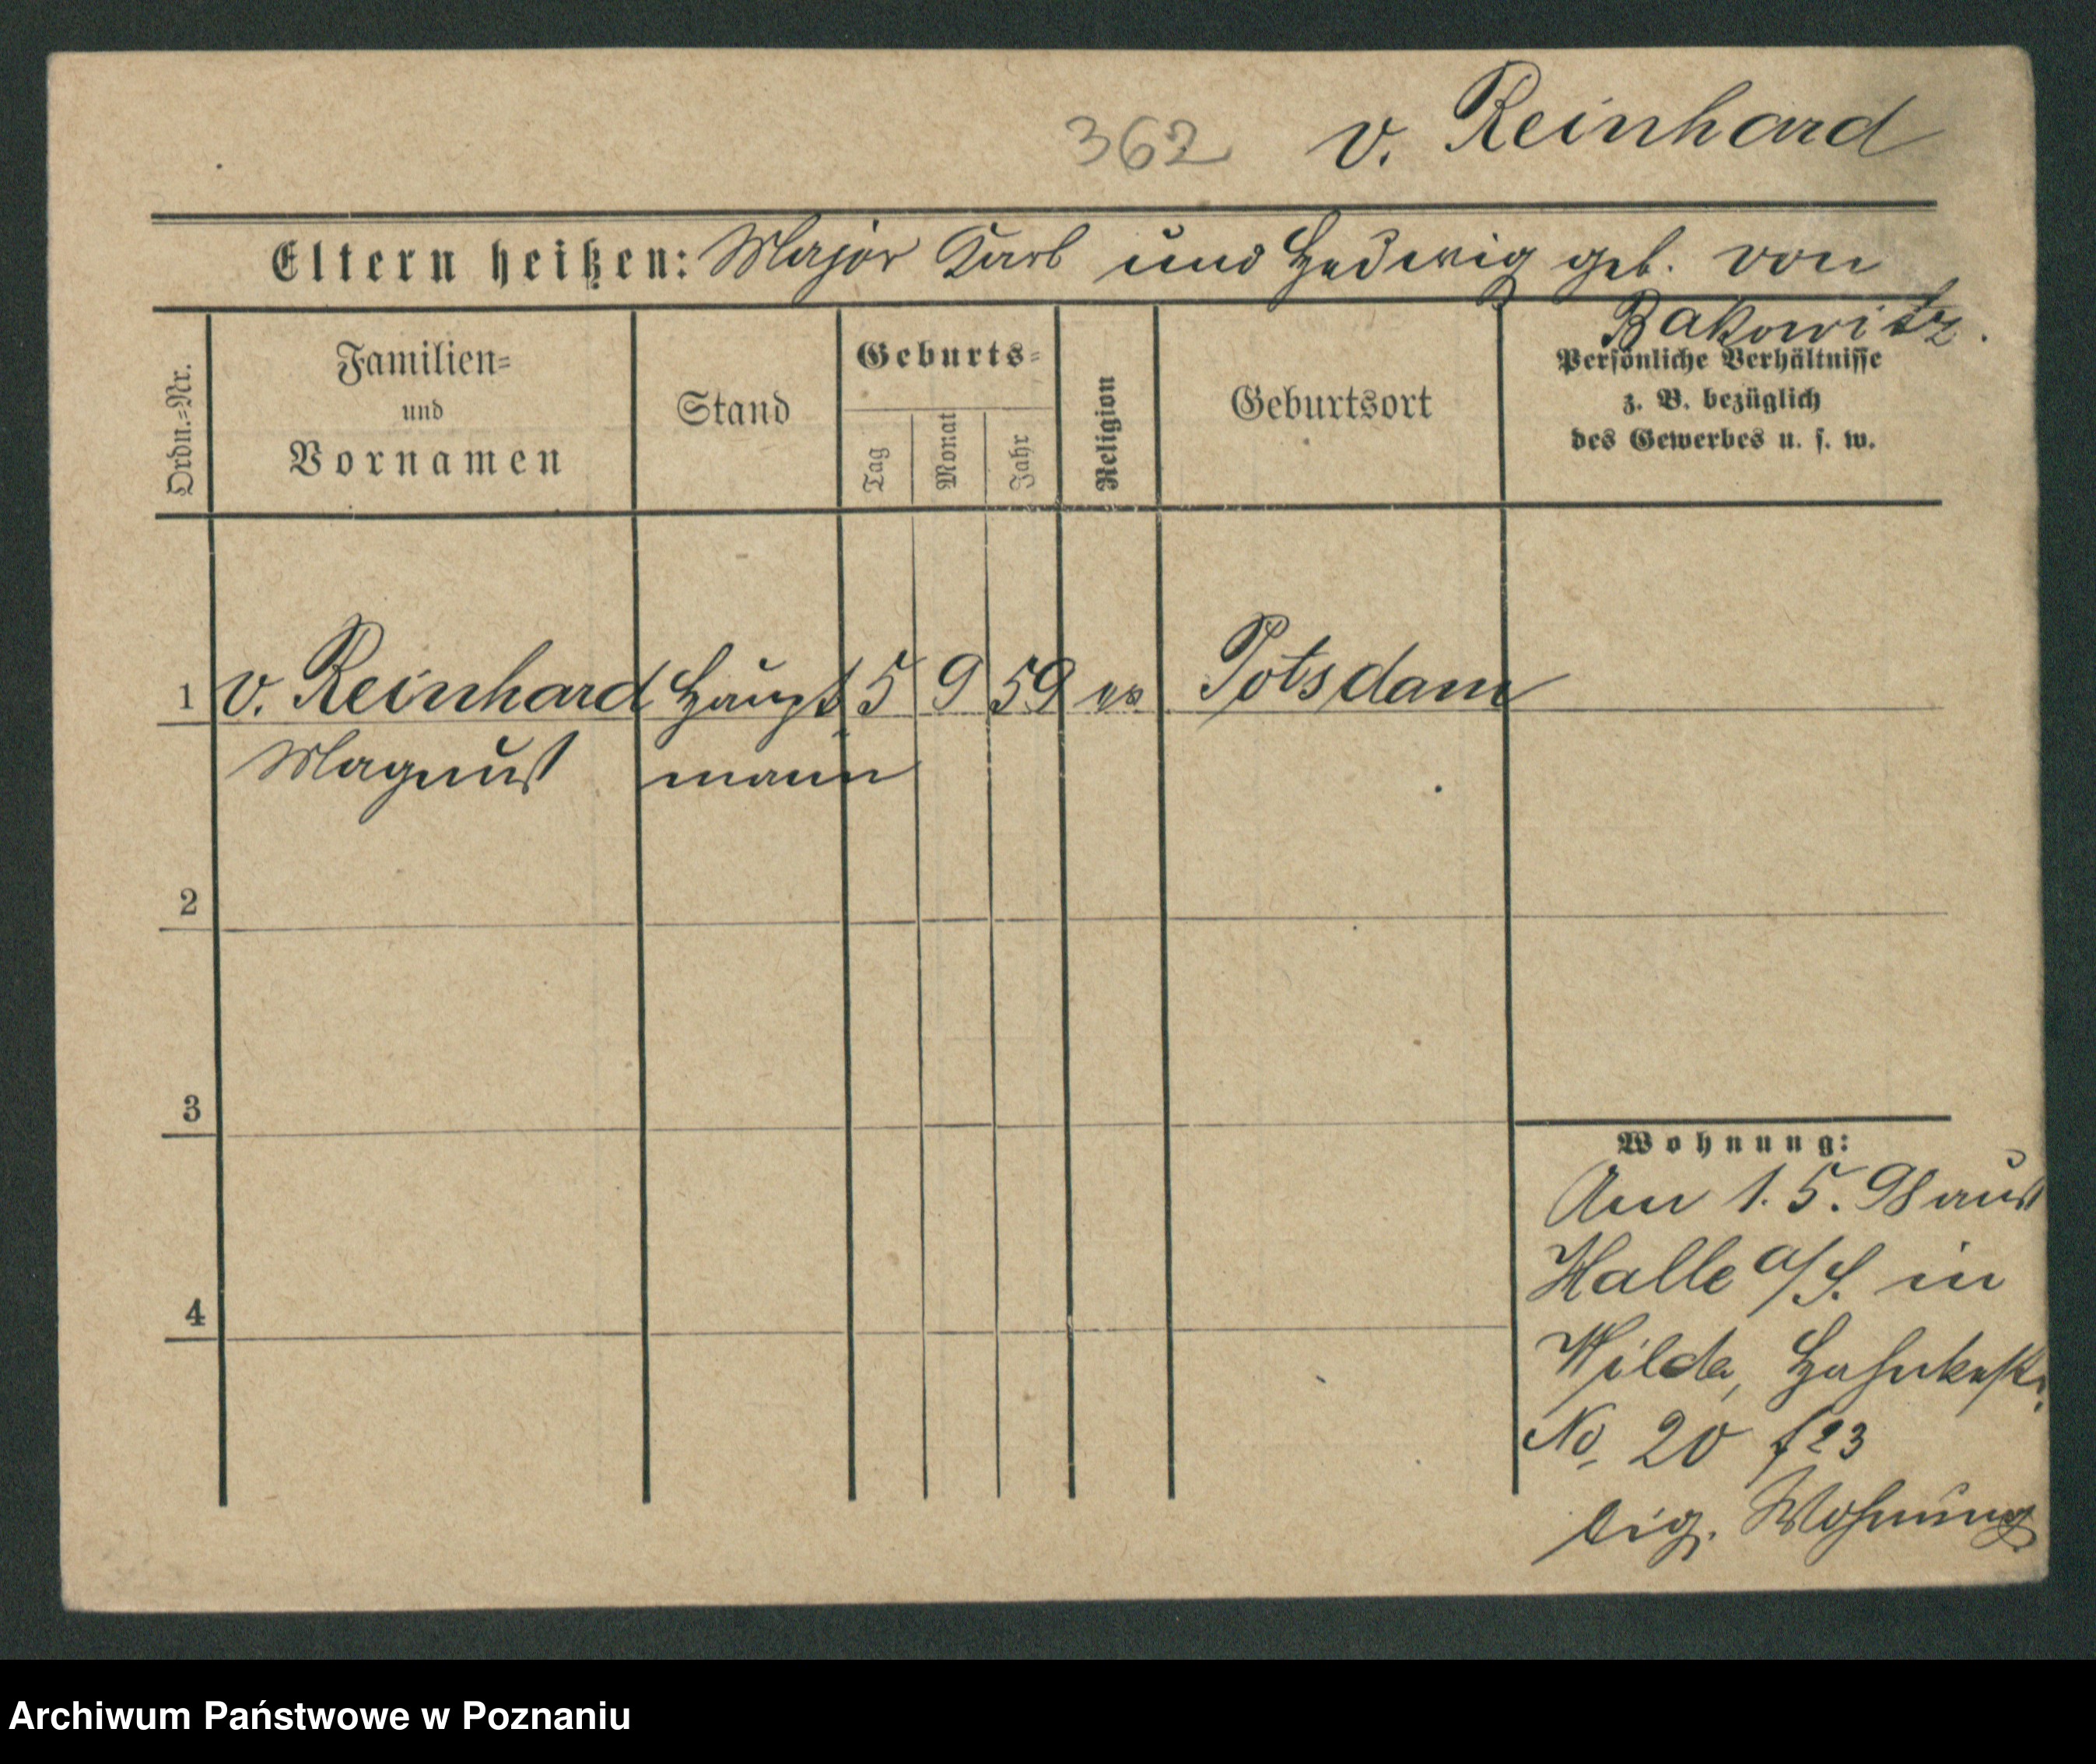 362 v. Reinhard
Eltern heißen: Major Karl und Hedwig geb. von
Bakowitz.
Ordn.=Nr.
Familien=
und
Vornamen
Stand
Geburts=
Tag
Monat
Jahr
Religion
Geburtsort
Persönliche Verhältnisse
z. B. bezüglich
des Gewerbes u. s. w.
1 v. Reinhard Haupt 5 9 59 ev Potsdam
Magnus mann
2
3
4
Wohnung:
Am 1. 5. 98 aus
Halle a/S. in
Wilda,
No 20
eig. Wohnung
Archiwum Państwowe w Poznaniu